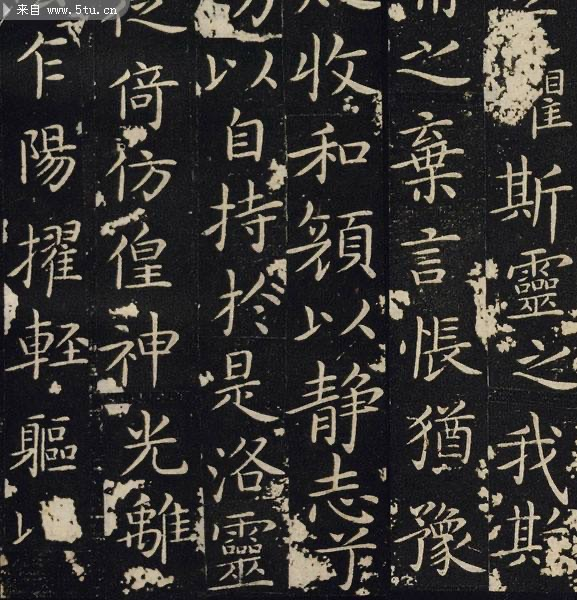 来自 www.5tu.cn
瞿斯靈之我欺
之棄言悵猶豫
收和顏以静志兮
以自持於是洛靈
倚仿偟神光離
乍陽擢輕軀以